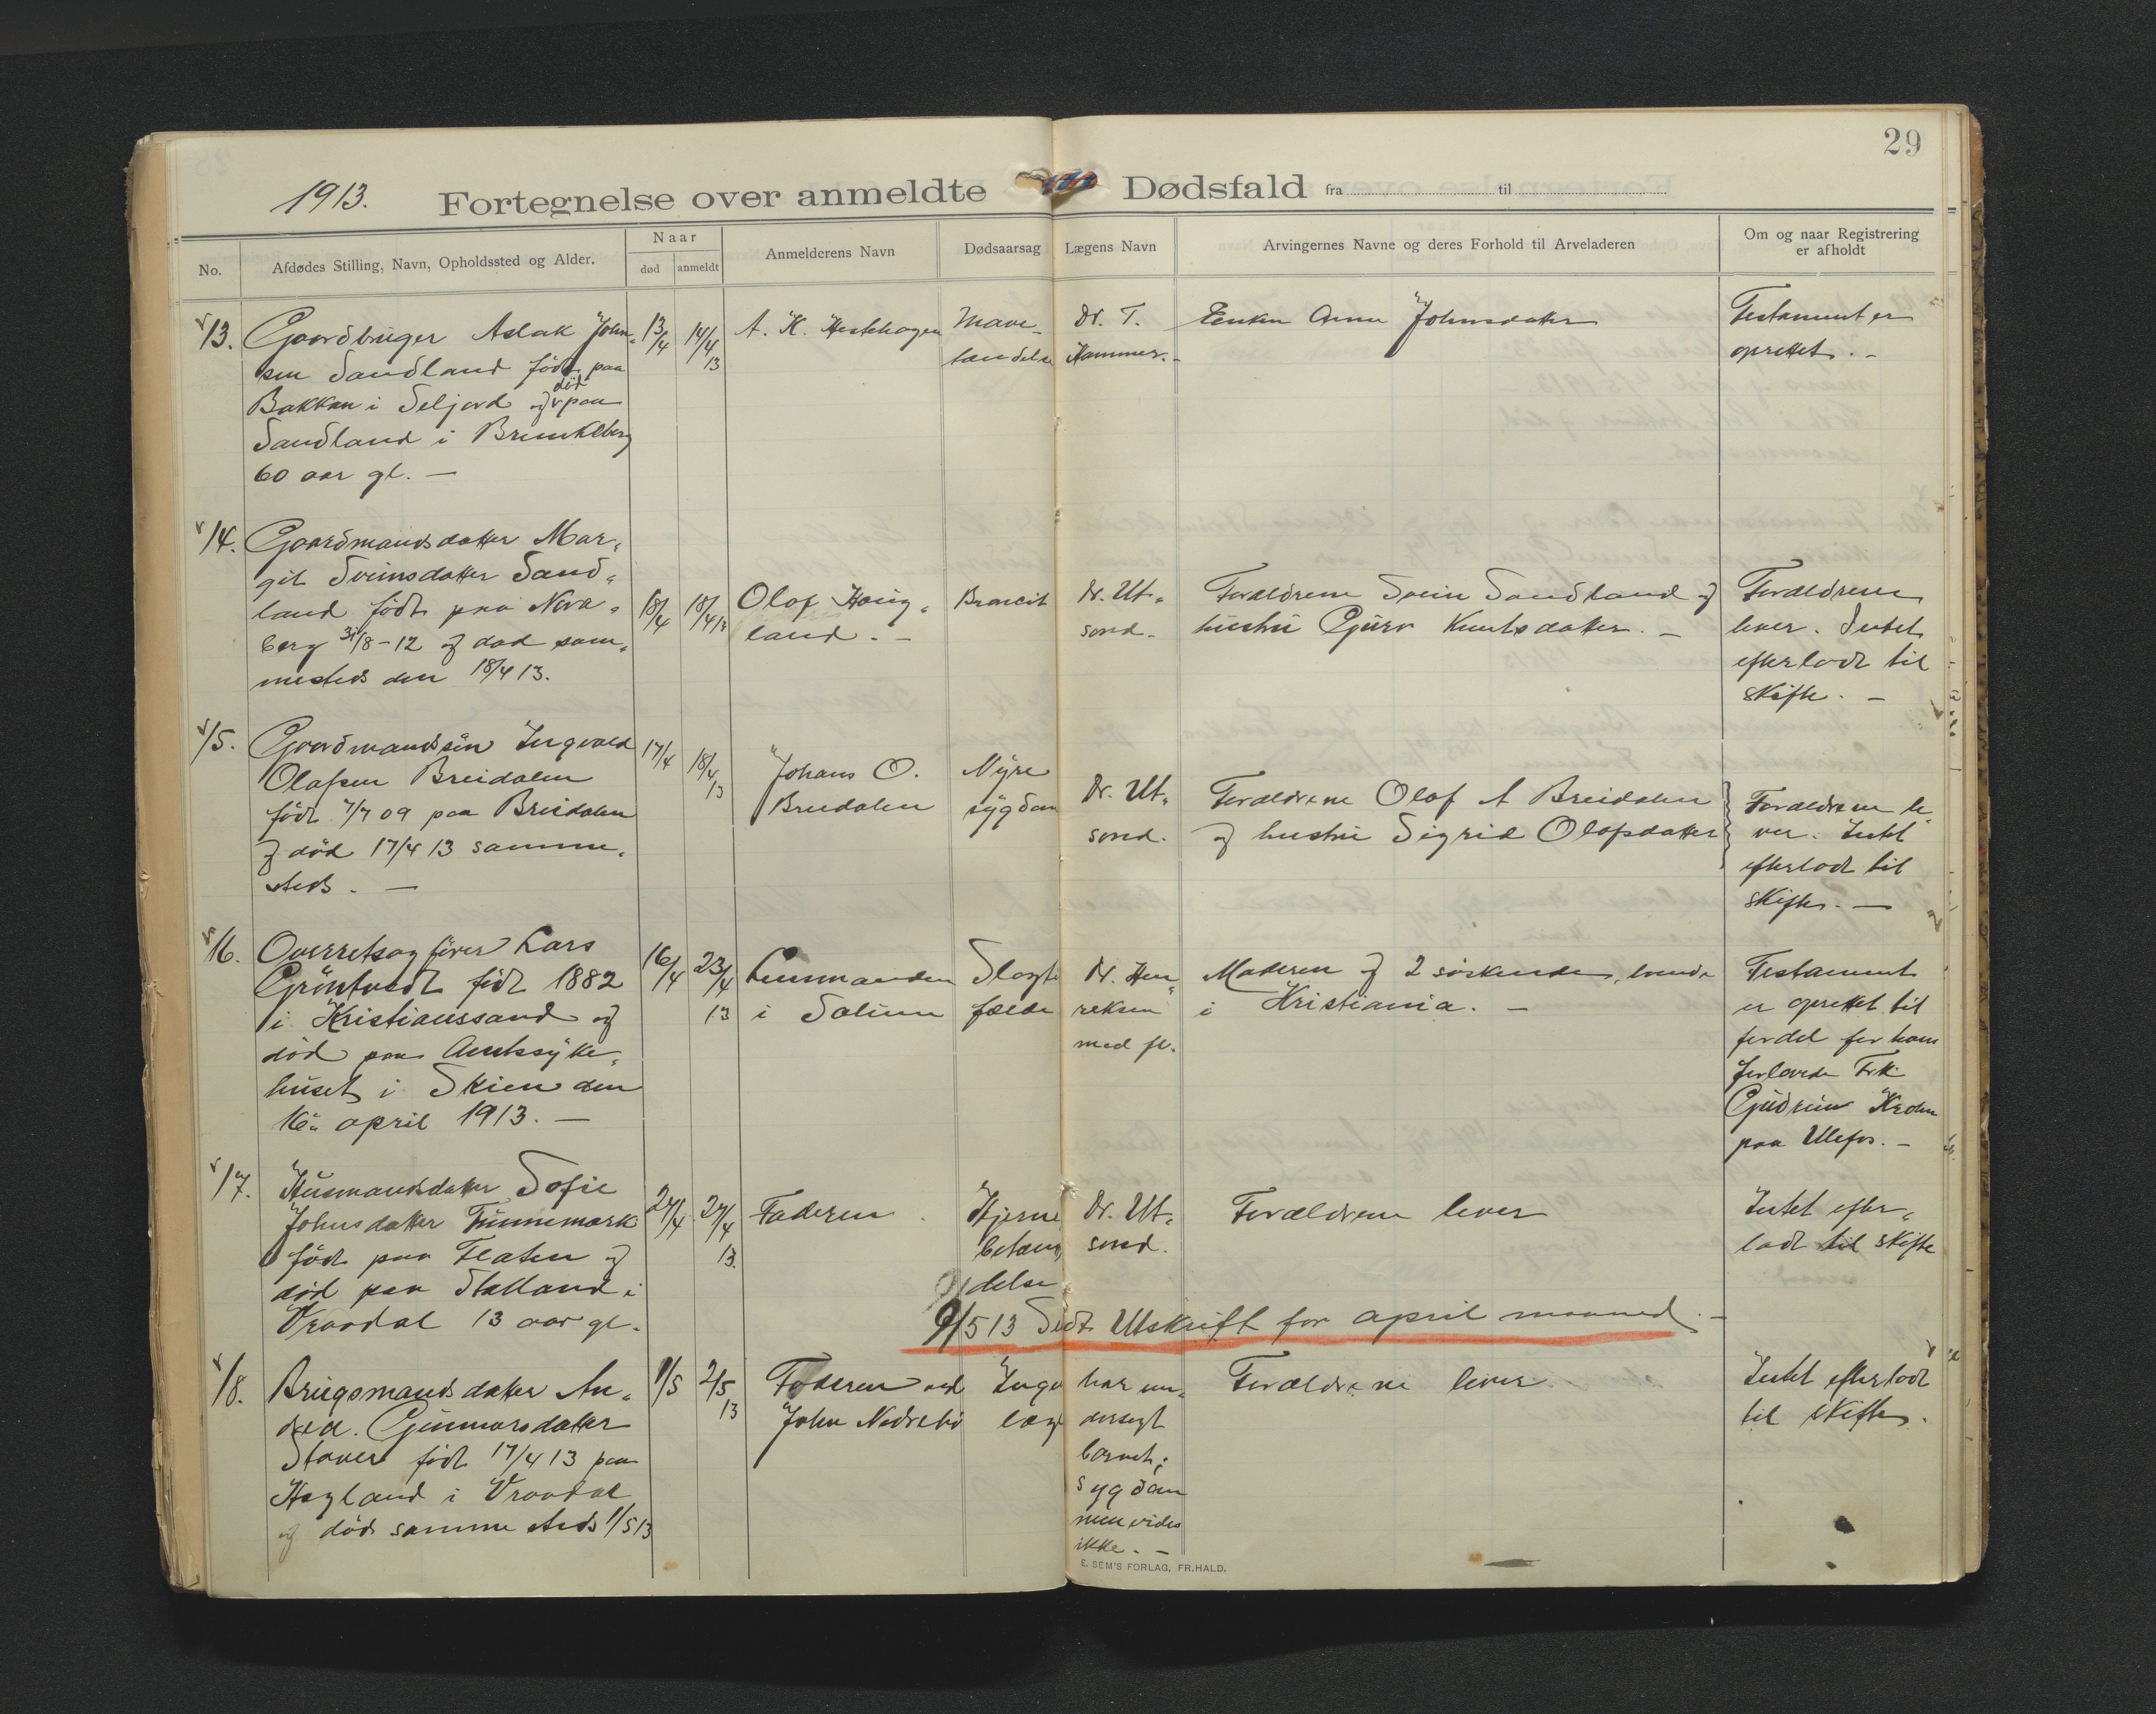 29
1913.
Fortegnelse over anmeldte Dødsfald fra til
No.
Afdødes Stilling, Navn, Opholdssted og Alder.
Naar
død anmeldt
Anmelderens Navn
Dødsaarsag
Lægens Navn
Arvingernes Navne og deres Forhold til Arveladeren
Om og naar Registrering
er afholdt
13.
Gaardbruger Aslak John-
sen Sandland født paa
Bakkan i Seljord og død paa
Sandland i Brunkeberg
60 aar gl. —
13/4
14/4 13
A. K. Hestehagen
Mave-
Dr. T.
Hammer. -
Enken Anne Johnsdatter
Testament er
oprettet. -
14.
Gaardmandsdatter Mar-
git Sveinsdatter Sand-
land født paa
berg 31/8-12 og død sam-
mesteds den 18/4 13.
18/4
18/4 13
Olaf Haug-
land. -
Broncit
Dr. Ut-
sond.
Forældrene Svein Sandland og
hustru Guro Knutsdatter. -
Forældrene
lever. Intet
efterladt til
skifte. -
15.
Gaardmandssøn Ingvald
Olafsen Breidalen
født 7/7 09 paa Breidalen
og død 17/4 13 samme-
steds. —
17/4
18/4 13
Johans O.
Breidalen
Nyre
sygdom
Dr. Ut-
sond.
Forældrene Olaf A Breidalen
og hustru Sigrid Olafsdatter
Forældrene le-
ver. Intet
efterladt til
skifte. —
16.
Overretssagfører Lars
Grøntvedt født 1882
i Kristianssand og
død paa Amtssyke-
huset i Skien den
16de april 1913. —
16/4
23/4 13
Lensmanden
i Solum
Slagtil-
fælde
Dr. Hen-
reksen
med fl.
Moderen og 2 søskende, boende
i Kristiania. -
Testament
er oprettet til
fordel for hans
forlovede Frk.
Gudrun Krohn
paa Ulefos. -
17.
Husmandsdatter Sofie
Johnsdatter Finnemark
født paa Flaten og
død paa Stalland i
Vraadal 13 aar gl.
27/4
27/4 13.
Faderen
Hjerne
betæn-
delse
Dr. Ut-
sond.
Forældrene lever
Intet efter-
ladt til skifte
9/5 13 Sendt Utskrift for april maaned. -
18.
Brugsmandsdatter An-
Gunnarsdatter
Staver født 17/4 13 paa
Høgland i Vraadal
og død samme steds 1/5 13
1/5
2/5 13
Faderen ved
John Nedrebø
Ingen
læge
har un-
dersøgt
barnet;
sygdom
men vides
ikke. -
Forældrene lever
Intet efterladt
til skifte.
E. SEM'S FORLAG, FR.HALD.